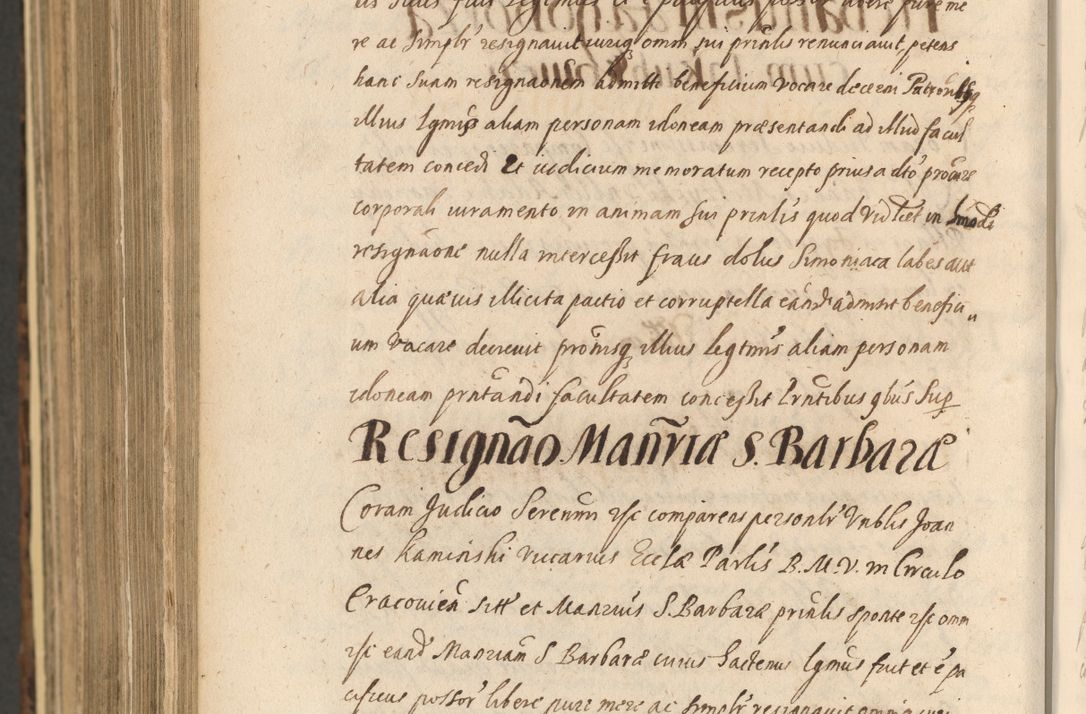 re ac simplr̃ resignavit iuriq̨ omni sui prinlis renunciavit, petens
hanc suam resignãonem admitti beneficium vocare decerni Patronisq̨
illius lgmis̃ aliam personam idoneam præsentandi ad illud facul
tatem concedi Et iudicium memoratum recepto prius a dto᷃ procure
corporali iuramento in animam sui prinlis quod vidlcet in hmodi
resignãone nulla intercessit fraus dolus simoniaca labes aut
alia quævis illicita pactio et corruptella eand̃ admisit benefici„
um vocare decrevit promisq̨ illius legtmis̃ aliam personam
idoneam prntandi facultatem concessit Prntibus qbus̃ sup
Resignão Manr̃iæ S. Barbaræ
Coram Judicio Serenmi rsc comparens personlr̃ Vnblis Joan
nes Kaminski vicarius Ecclæ Parlis̃ B. M. V. in Circulo
Cracovien̄ sitt̃ et Manrius S. Barbaræ prinlis sponte rsc omni
rsc eand̃ Manriam S Barbaræ cuius hactenus lgmus̃ fuit et è pa
cificus possor̃ libere pure mere ac simplr̃ resignavit omniq̨ iuri